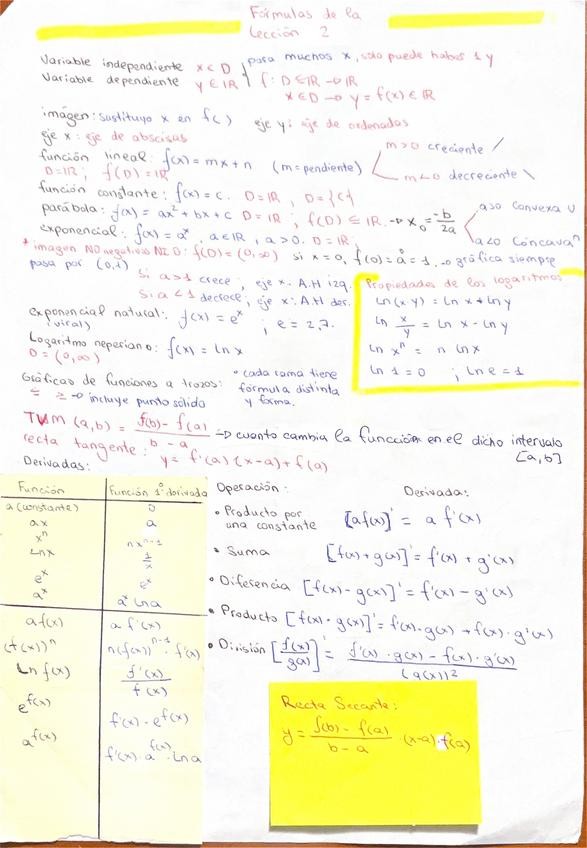 Fórmulas de la
Lección 2
Variable independiente x ∈ D
Variable dependiente y ∈ IR
para muchos x, solo puede haber 1 y
f: D ⊆ IR → IR
x ∈ D → y = f(x) ∈ IR
imágen: sustituyo x en f( ) eje y: eje de ordenadas
eje x: eje de abscisas
función lineal: f(x) = mx + n (m = pendiente)
m > 0 creciente /
m < 0 decreciente \
D = IR; f(D) = IR
función constante: f(x) = c. D = IR, D = {c}
parábola: f(x) = ax² + bx + c D = IR; f(D) ⊆ IR. → x₀ = -b/2a
a>0 Convexa ∪
a<0 Cóncava ∩
exponencial: f(x) = aˣ, a ∈ IR, a > 0. D = IR,
* imagen NO negativos NI 0: f(D) = (0, ∞) si x = 0, f(0) = a⁰ = 1. → gráfica siempre
pasa por (0,1)
Si a > 1 crece, eje x. A.H izq.
Si a < 1 decrece, eje x: A.H der.
exponencial natural: f(x) = eˣ ; e = 2,7.
(viral)
Logaritmo neperiano: f(x) = ln x
D = (0, ∞)
Propiedades de los logaritmos
Ln(x·y) = Ln x + Ln y
Ln x/y = Ln x - Ln y
Ln xⁿ = n Ln x
Ln 1 = 0 ; Ln e = 1
Gráficas de funciones a trozos:
≤ ≥ → incluye punto sólido
• cada rama tiene
fórmula distinta
y forma.
TVM (a,b) = f(b) - f(a) / b - a → cuanto cambia la función en el dicho intervalo
[a,b]
recta tangente: y = f'(a)·(x-a) + f(a)
Derivadas:
Función Función 1ª derivada
a (constante) 0
ax a
xⁿ nxⁿ⁻¹
Ln x 1/x
eˣ eˣ
aˣ aˣ Ln a
a f(x) a f'(x)
(f(x))ⁿ n(f(x))ⁿ⁻¹ · f'(x)
Ln f(x) f'(x)/f(x)
e^f(x) f'(x) · e^f(x)
a^f(x) f'(x) · a^f(x) · Ln a
Operación: Derivada:
• Producto por
una constante [af(x)]' = a f'(x)
• Suma [f(x) + g(x)]' = f'(x) + g'(x)
• Diferencia [f(x) - g(x)]' = f'(x) - g'(x)
• Producto [f(x) · g(x)]' = f'(x)·g(x) + f(x)·g'(x)
• División [f(x)/g(x)]' = f'(x)·g(x) - f(x)·g'(x) / (g(x))²
Recta Secante:
y = f(b) - f(a) / b - a · (x-a) · f(a)